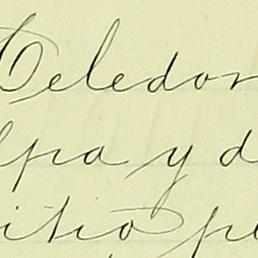 Celedon
lpa y d
itió pe